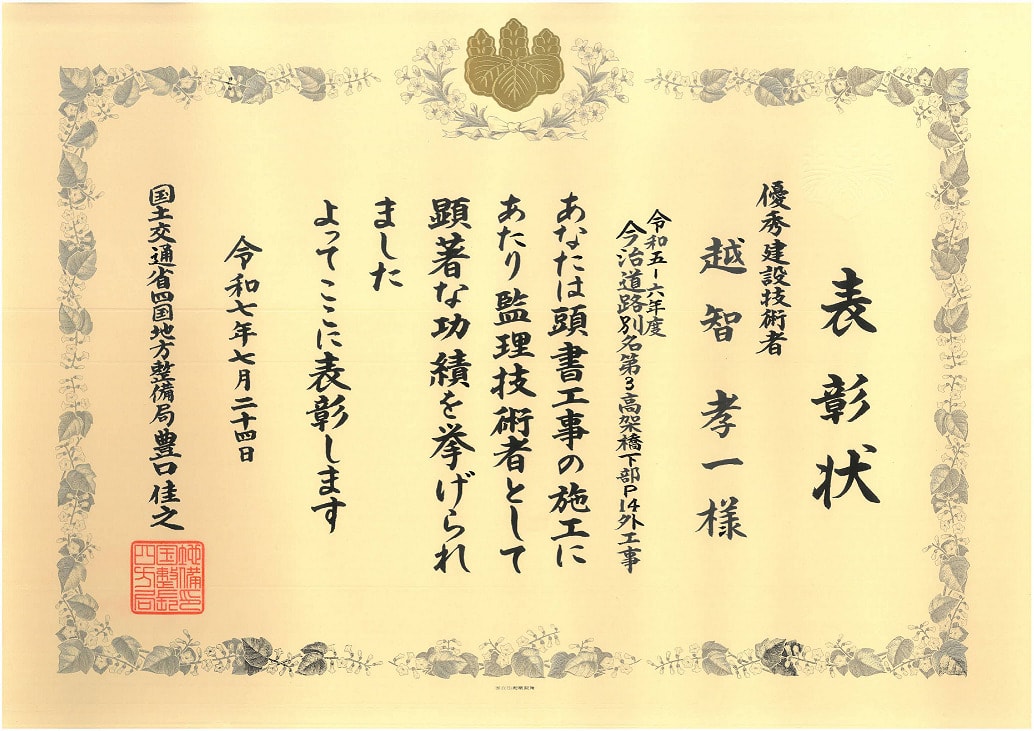 表彰状
優秀建設技術者
越智孝一様
令和五-六年度
今治道路別名第3高架橋下部P14外工事
あなたは頭書工事の施工に
あたり監理技術者として
顕著な功績を挙げられ
ました
よってここに表彰します
令和七年七月二十四日
国土交通省四国地方整備局長豊口佳之